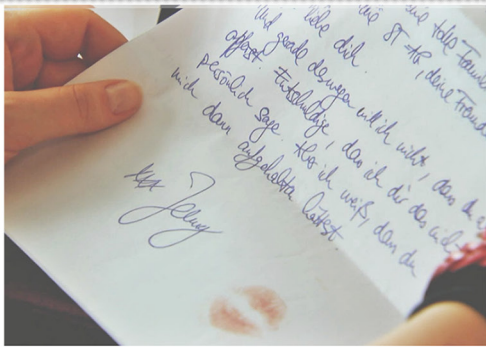 tolle Familie
liebe dich. die ST-AG, deine Freund
Und gerade deswegen will ich nicht, dass du
opferst. Entschuldige, dass ich dir das nich
persönlich sage. Aber ich weiß, dass du
mich dann aufgehalten hättest.
xxx Jenny